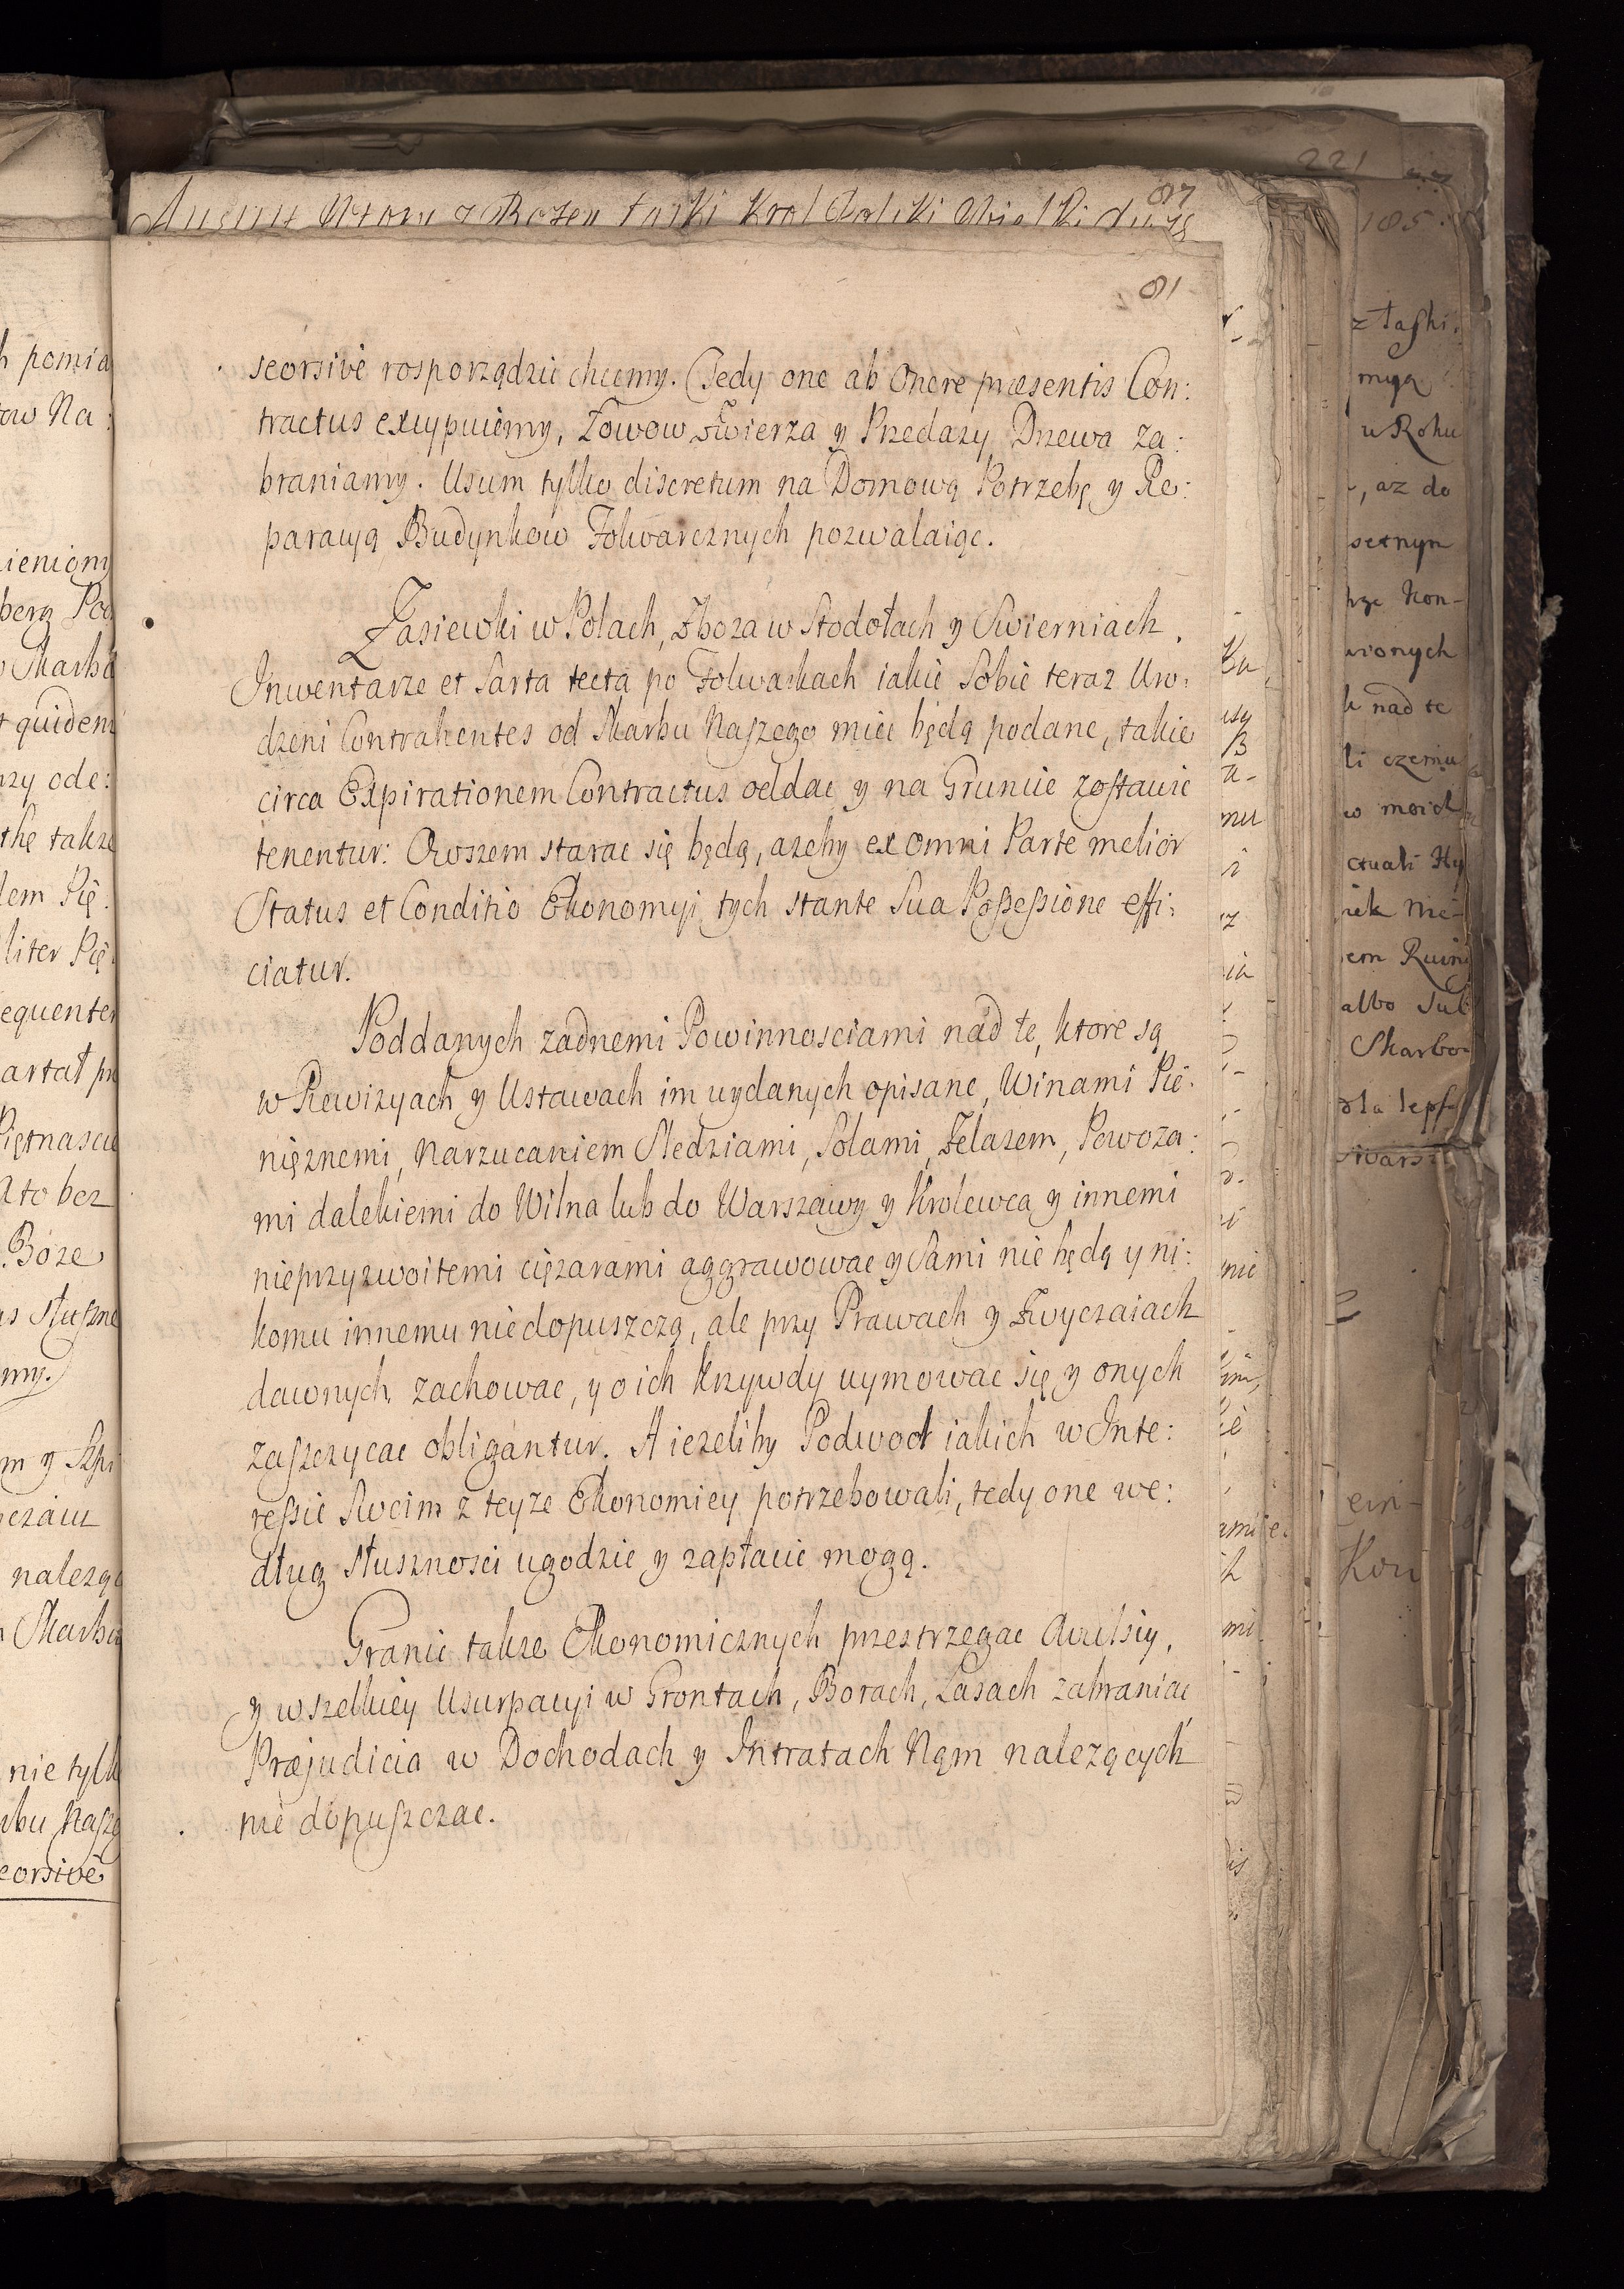 87
81
seorsivè rosporządzić chcemy. Tedy one ab Onere præsentis Con:
tractus excypuiemy, Łowow Zwierza y Przedazy Drzewa za:
braniamy. Usum tylko discretum na Domową Potrzebę y Re:
paracyą Budynkow Folwarcznych pozwalaiąc.
Zasiewki w Polach, Zboza w Stodołach y Swierniach,
Inwentarze et Sarta tecta po Folwarkach iakie Sobie teraz Uro:
dzeni Contrahentes od Skarbu Naszego miec będą podane, takie
circa Expirationem Contractus oddac y na Gruncie zostawic
tenentur: Owszem starac się będą, azeby ex omni Parte melior
Status et Conditio Ekonomyi tych stante Sua Possessione effi:
ciatur.
Poddanych zadnemi Powinnosciami nad te, ktore są
w Rewizyach y Ustawach im wydanych opisane, Winami Pie:
nięznemi, Narzucaniem Sledziami, Solami, Zelazem, Powoza:
mi dalekiemi do Wilna lub do Warszawy y Krolewca y innemi
nieprzyzwoitemi cięzarami aggrawowac y Sami nie będą y ni:
komu innemu niedopuszczą, ale przy Prawach y Zwyczaiach
dawnych zachowac, y o ich Krzywdy uymowac się y onych
zaszczycac obligantur. A iezeliby Podwod iakich w Inte:
ressie Swoim z teyze Ekonomiey potrzebowali, tedy one we:
dług słusznosci ugodzic y zapłacic mogą.
Granic takze Ekonomicznych przestrzegac Avulsiy,
y wszelkiey Usurpacyi w Grontach, Borach, Lasach zabraniac
Præjudicia w Dochodach y Intratach Nam nalezących
nie dopuszczac.